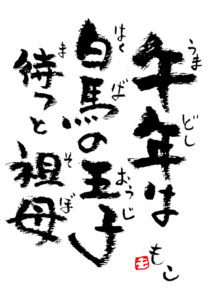 午年は
白馬の王子
待つと祖母
うまどし
はくばおうじ
まそぼ
もこ